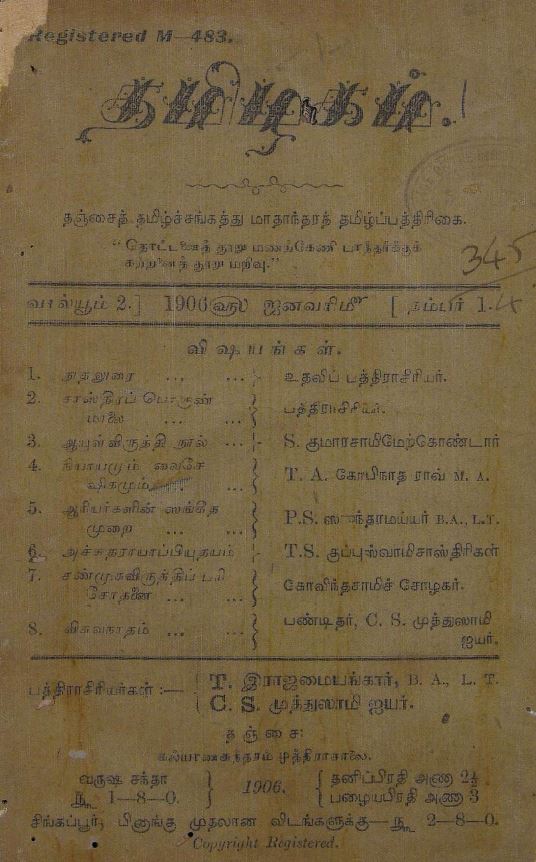 Registered M—483.
தமிழகம்.
தஞ்சைத் தமிழ்ச்சங்கத்து மாதாந்தரத் தமிழ்ப்பத்திரிகை.
"தொட்டனைத் தூறு மணற்கேணி மாந்தர்க்குக்
கற்றனைத் தூறு மறிவு."
345
வால்யூம் 2.] 1906௵ ஜனவரிமீ [நம்பர் 1.
விஷயங்கள்.
1. நூதனுரை ... ... உதவிப் பத்திராசிரியர்.
2. சாஸ்திரப் பொருண்
மாலை ... ... பத்திராசிரியர்.
3. ஆயுள்விருத்தி நூல் ... S. குமாரசாமிமேற்கொண்டார்
4. நியாயமும் வைசே
ஷிகமும் ... T. A. கோபிநாத ராவ் M. A.
5. ஆரியர்களின் ஸங்கீத
முறை ... ... P.S. ஸுந்தரமய்யர் B.A., L.T.
6. அச்சுதராயாப்பியுதயம் T.S. குப்புஸ்வாமிசாஸ்திரிகள்
7. சண்முகவிருத்திப் பரி
சோதனை ... ... கோவிந்தசாமிச் சோழகர்.
8. விசுவநாதம் ... ... பண்டிதர், C. S. முத்துஸாமி
ஐயர்.
பத்திராசிரியர்கள் :— T. இராஜமையங்கார், B. A., L. T.
C. S. முத்துஸாமி ஐயர்.
தஞ்சை:
கல்யாணசுந்தரம் முத்திராசாலை.
வருஷ சந்தா 1906. தனிப்பிரதி அணா 2½
ரூ 1—8—0. பழையபிரதி அணா 3
சிங்கப்பூர், பினாங்கு முதலான விடங்களுக்கு—ரூ 2—8—0.
Copyright Registered.